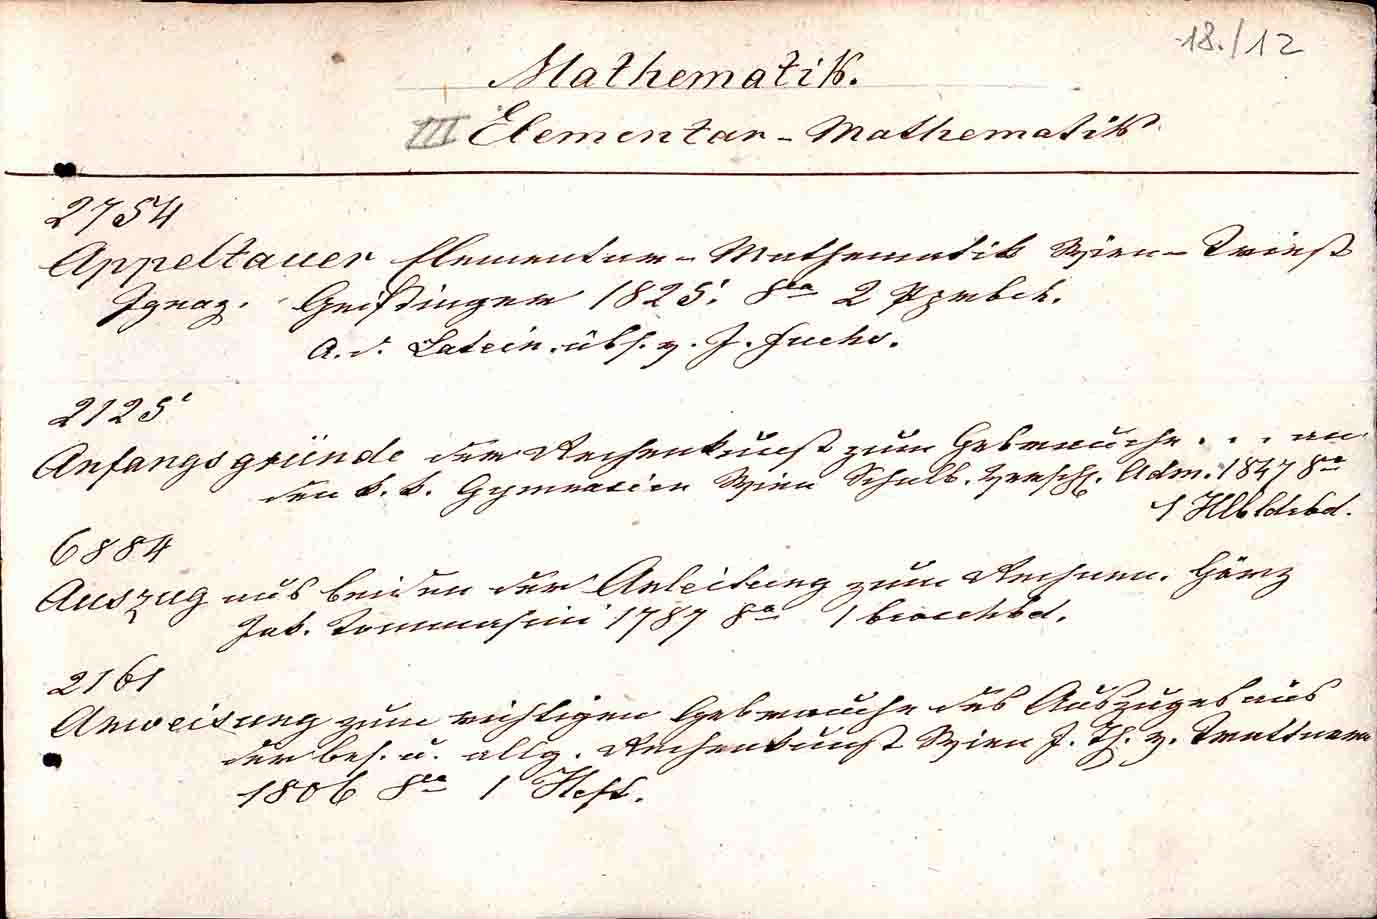 18./12
Mathematik.
III Elementar-Mathematik
2754
Appeltauer Elementar-Mathematik Wien-Triest
Ignaz. Geistinger 1825. 8va 2 Pprbch.
A. d. Latein. übs. v. J. Fuchs.
2125
Anfangsgründe der Rechenkunst zum Gebrauche . . . an
den k. k. Gymnasien Wien Schulb. Versch. Adm. 1847 8va
1 Hlbldrbd.
6884
Auszug aus beiden der Anleitung zum Rechnen. Görz
Jak. Tommasini 1787 8va 1 brochbd.
2161
Anweisung zum richtigen Gebrauche des Auszuges aus
der bes. u. allg. Rechenkunst Wien J. Th. v. Trattnern
1806 8va 1 Heft.